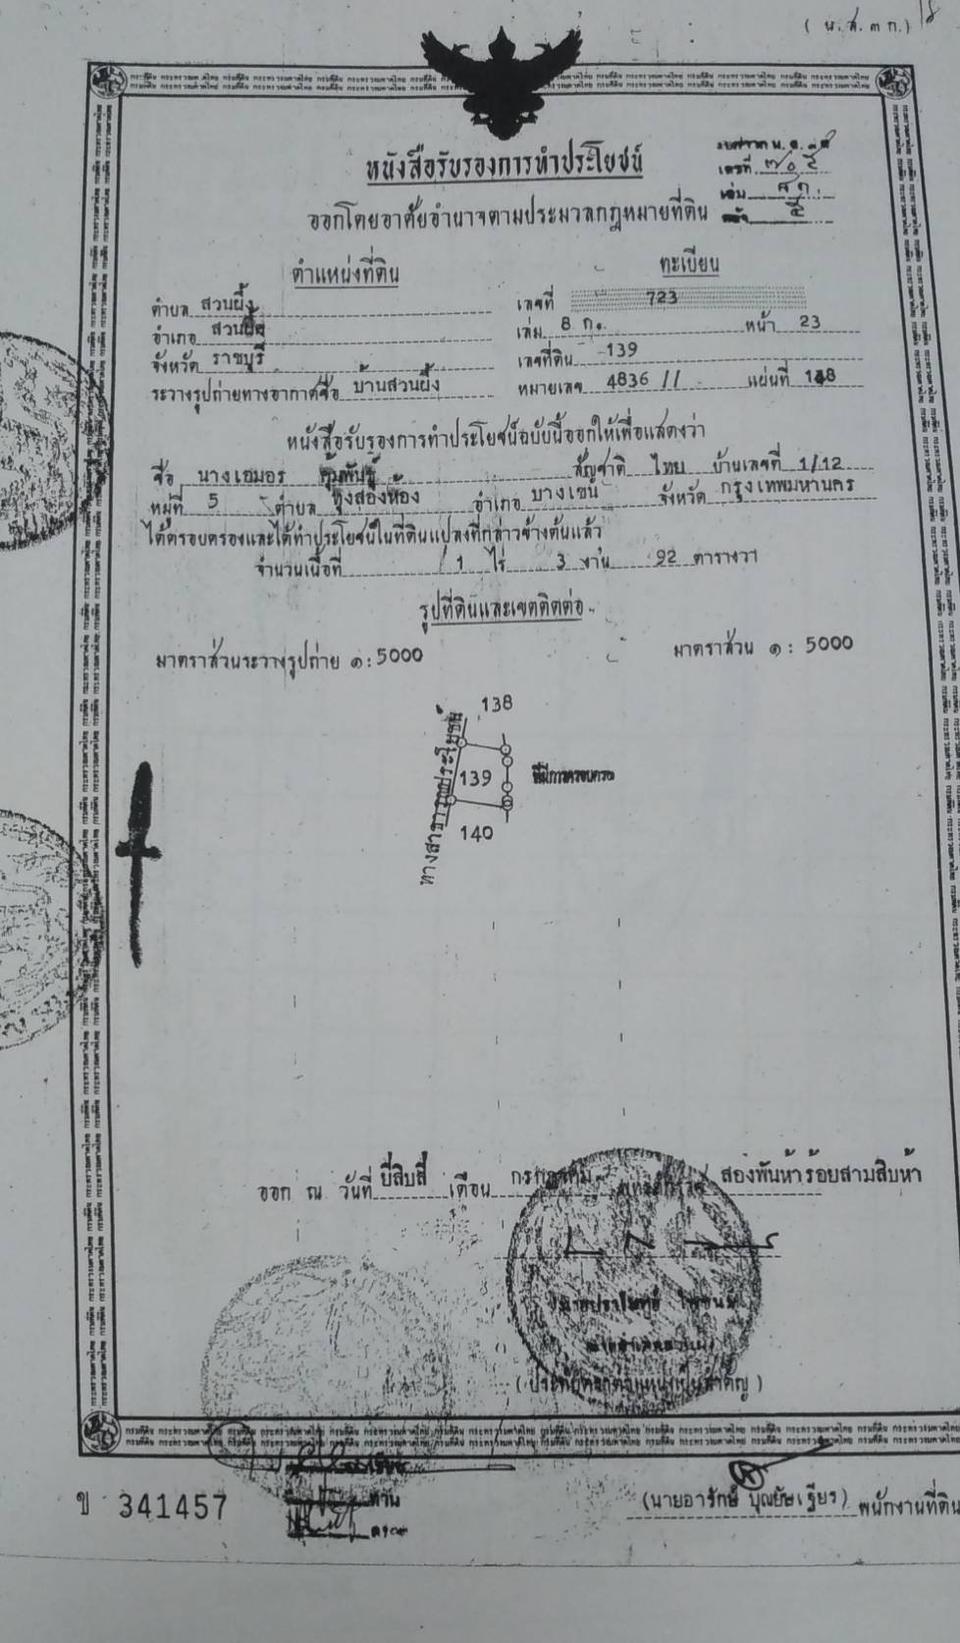 ( น.ส.๓ ก.)
หนังสือรับรองการทำประโยชน์
เลขที่
เล่ม
ออกโดยอาศัยอำนาจตามประมวลกฎหมายที่ดิน
ตำแหน่งที่ดิน
ทะเบียน
ตำบล สวนผึ้ง
เลขที่ 723
อำเภอ สวนผึ้ง
เล่ม 8 ก. หน้า 23
จังหวัด ราชบุรี
เลขที่ดิน 139
ระวางรูปถ่ายทางอากาศชื่อ บ้านสวนผึ้ง
หมายเลข 4836 II แผ่นที่
หนังสือรับรองการทำประโยชน์ฉบับนี้ออกให้เพื่อแสดงว่า
ชื่อ นางเอมอร สัญชาติ ไทย บ้านเลขที่ 1/12
หมู่ที่ 5 ตำบล ทุ่งสองห้อง อำเภอ บางเขน จังหวัด กรุงเทพมหานคร
ได้ครอบครองและได้ทำประโยชน์ในที่ดินแปลงที่กล่าวข้างต้นแล้ว
จำนวนเนื้อที่ 1 ไร่ 3 งาน 92 ตารางวา
รูปที่ดินและเขตติดต่อ
มาตราส่วนระวางรูปถ่าย ๑:5000
มาตราส่วน ๑ : 5000
138
ทางสาธารณประโยชน์
139
140
ออก ณ วันที่ ยี่สิบสี่ เดือน กรกฎาคม พุทธศักราช สองพันห้าร้อยสามสิบห้า
(ประทับตราตำแหน่งเป็นสำคัญ)
ข 341457
พนักงานที่ดิน